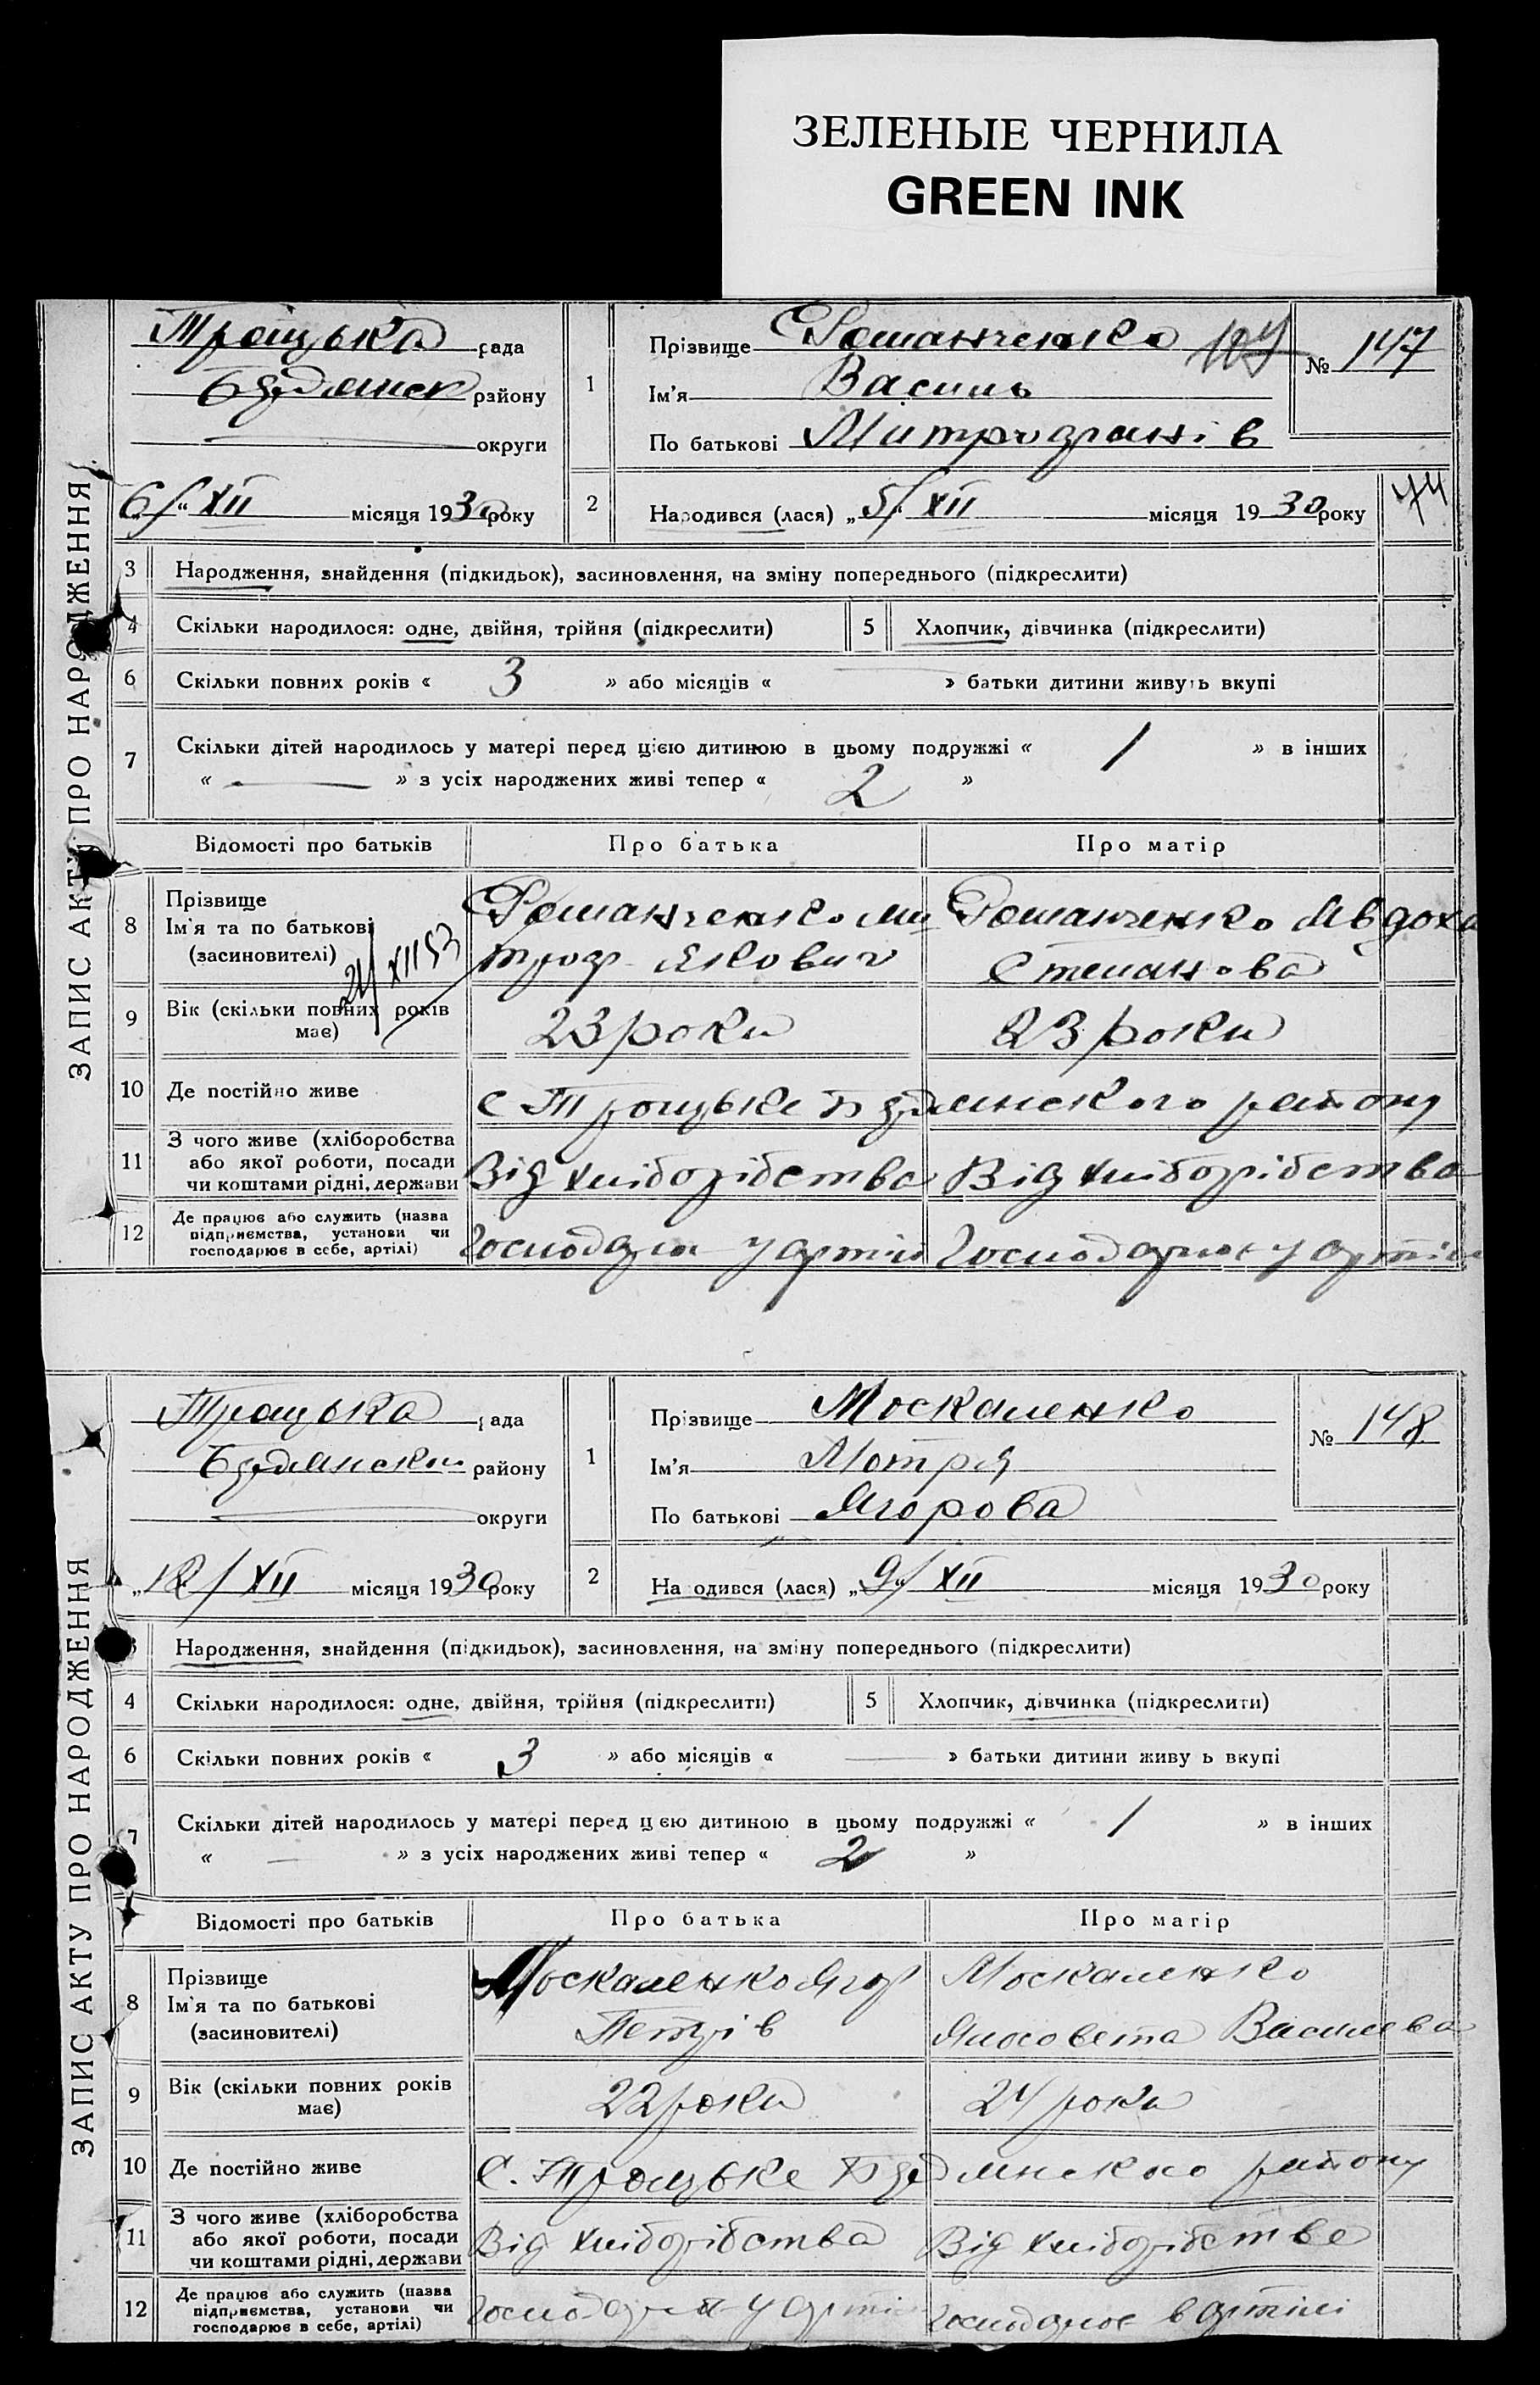 ЗЕЛЕНЫЕ ЧЕРНИЛА
GREEN INK
ЗАПИС АКТУ ПРО НАРОДЖЕННЯ
Троцька рада
району
округи
6/XII місяця 1930 року
1
Прізвище Романченко
Ім'я Василь
По батькові Митрофанів
№ 147
2
Народився (лася) „5/XII місяця 1930 року
44
3 Народження, знайдення (підкидьок), засиновлення, на зміну попереднього (підкреслити)
4 Скільки народилося: одне, двійня, трійня (підкреслити) 5 Хлопчик, дівчинка (підкреслити)
6 Скільки повних років « 3 » або місяців « — » батьки дитини живуть вкупі
7 Скільки дітей народилось у матері перед цією дитиною в цьому подружжі « 1 » в інших
« — » з усіх народжених живі тепер « 2 »
Відомості про батьків Про батька Про матір
8 Прізвище
Ім'я та по батькові
(засиновителі)
21/XII 53
Романченко Ми
троф Якович
Романченко Явдоха
Степанова
9 Вік (скільки повних років
має)
23 роки 23 роки
10 Де постійно живе С Троцьке Будянского району
11 З чого живе (хліборобства
або якої роботи, посади
чи коштами рідні, держави
Від хліборібства Від хліборібства
12 Де працює або служить (назва
підприємства, установи чи
господарює в себе, артілі)
Господарює у артілі Господарює у артілі
ЗАПИС АКТУ ПРО НАРОДЖЕННЯ
Троцька рада
району
округи
„12/XII місяця 1930 року
1
Прізвище Москаленко
Ім'я Мотря
По батькові Ягорова
№ 148
2
На одився (лася) „9/XII місяця 1930 року
Народження, знайдення (підкидьок), засиновлення, на зміну попереднього (підкреслити)
4 Скільки народилося: одне, двійня, трійня (підкреслити) 5 Хлопчик, дівчинка (підкреслити)
6 Скільки повних років « 3 » або місяців « — » батьки дитини живу ь вкупі
7 Скільки дітей народилось у матері перед цією дитиною в цьому подружжі « 1 » в інших
« — » з усіх народжених живі тепер « 2 »
Відомості про батьків Про батька Про матір
8 Прізвище
Ім'я та по батькові
(засиновителі)
Москаленко Ягор
Петрів
Москаленко
Ялосовета Василева
9 Вік (скільки повних років
має)
22 роки 24 роки
10 Де постійно живе С. Троцьке Будянского району
11 З чого живе (хліборобства
або якої роботи, посади
чи коштами рідні, держави
Від хліборібства Від хліборібства
12 Де працює або служить (назва
підприємства, установи чи
господарює в себе, артілі)
Господарює у артілі Господарює в артілі